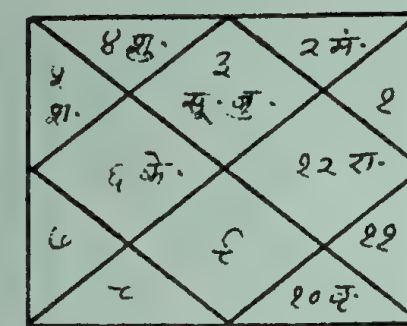 ४ शु.
३
सू. बु.
२ मं.
५
श.
१
६ के.
१२ रा.
७
९
११
८
१० बृ.